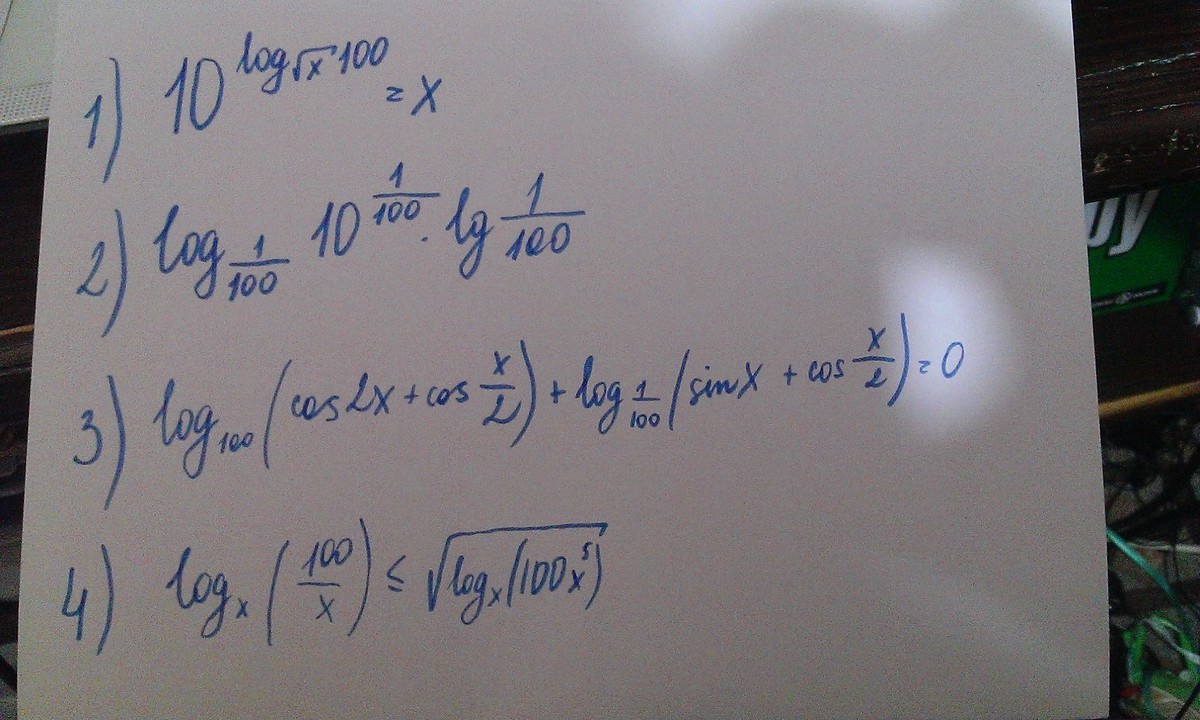 1) 10^{log_{√x} 100} = x
2) log_{1/100} 10^{1/100} · lg 1/100
3) log_{100} (cos 2x + cos x/2) + log_{1/100} (sin x + cos x/2) = 0
4) log_x (100/x) ≤ √(log_x (100x^5))